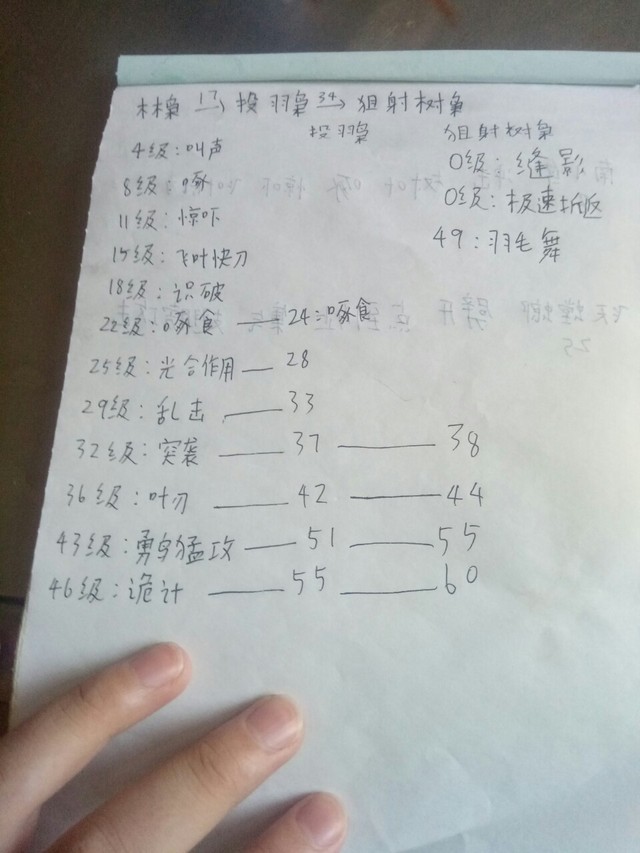 木木枭 17→ 投羽枭 34→ 狙射树枭
投羽枭 狙射树枭
4级:叫声 0级:缝影
8级:啄 0级:极速折返
11级:惊吓 49:羽毛舞
15级:飞叶快刀
18级:识破
22级:啄食——24:啄食
25级:光合作用—28
29级:乱击——33
32级:突袭——37——38
36级:叶刃——42——44
43级:勇鸟猛攻——51——55
46级:诡计——55——60